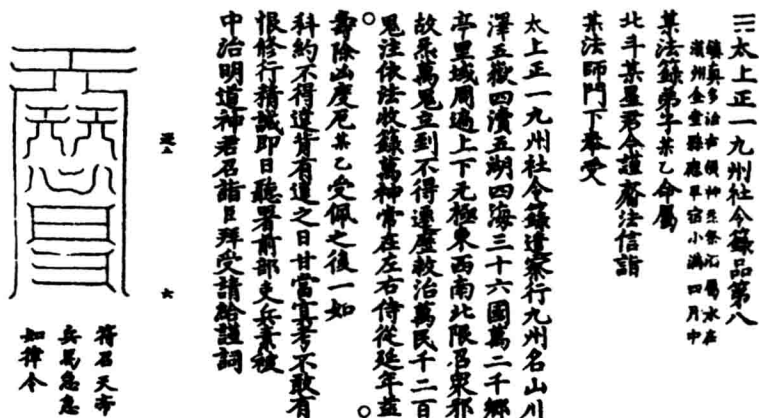 太上正一九州社令籙品第八
鎮真多治左領神祭酒屬水在
漢州金堂縣應畢宿小滿四月中
某法籙弟子某乙命屬
北斗某星君今謹齎法信詣
某法師門下奉受
太上正一九州社令籙遣察行九州名山川
澤五嶽四瀆五湖四海三十六國萬二千鄉
亭里域周遍上下无極東西南北限召眾邪
故炁萬鬼立到不得遲壓救治萬民千二百
鬼注依法收錄萬神常在左右侍從延年益
壽除凶度厄某乙受佩之後一如
科約不得違背有違之日甘當冥考不敢有
恨修行精誠即日聽署前部吏兵素被
中治明道神君召詣臣拜受請給謹詞
六
符召天帝
兵馬急急
如律令